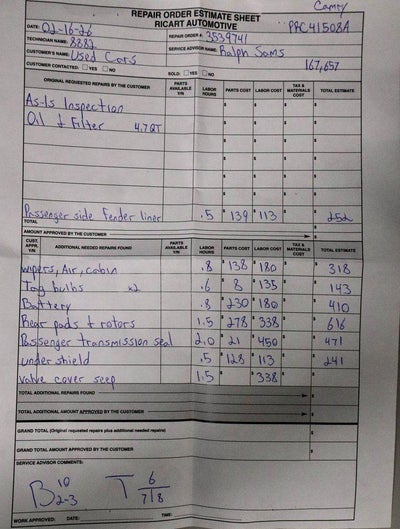 Camry
REPAIR ORDER ESTIMATE SHEET
RICART AUTOMOTIVE
PRC41508A
DATE: 02-16-26 REPAIR ORDER # 3539741
TECHNICIAN NAME: 8882 SERVICE ADVISOR NAME: Ralph Sams
CUSTOMER'S NAME: Used Cars 167,657
CUSTOMER CONTACTED: YES NO SOLD: YES NO
ORIGINAL REQUESTED REPAIRS BY THE CUSTOMER PARTS AVAILABLE Y/N LABOR HOURS PARTS COST LABOR COST TAX & MATERIALS COST TOTAL ESTIMATE
As-Is Inspection $ $ $ $
Oil & Filter 4.7QT $ $ $ $
$ $ $ $
$ $ $ $
$ $ $ $
$ $ $ $
Passenger side Fender liner .5 $139 $113 $ $252
TOTAL
AMOUNT APPROVED BY THE CUSTOMER $
CUST. APPR. Y/N ADDITIONAL NEEDED REPAIRS FOUND PARTS AVAILABLE Y/N LABOR HOURS PARTS COST LABOR COST TAX & MATERIALS COST TOTAL ESTIMATE
wipers, Air, cabin .8 $138 $180 $ $318
Tag bulbs x2 .6 $8 $135 $ $143
Battery .8 $230 $180 $ $410
Rear pads & rotors 1.5 $278 $338 $ $616
Passenger transmission seal 2.0 $21 $450 $ $471
under shield .5 $128 $113 $ $241
valve cover seep 1.5 $ $338 $ $
TOTAL ADDITIONAL REPAIRS FOUND $
TOTAL ADDITIONAL AMOUNT APPROVED BY THE CUSTOMER $
GRAND TOTAL (Original requested repairs plus additional needed repairs) $
GRAND TOTAL AMOUNT APPROVED BY THE CUSTOMER $
SERVICE ADVISOR COMMENTS:
B 10 2-3 T 6 7/8
WORK APPROVED: DATE: TIME: